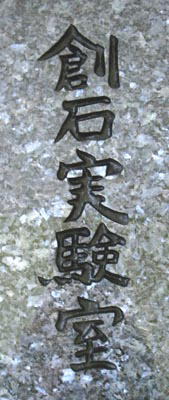 創石実験室